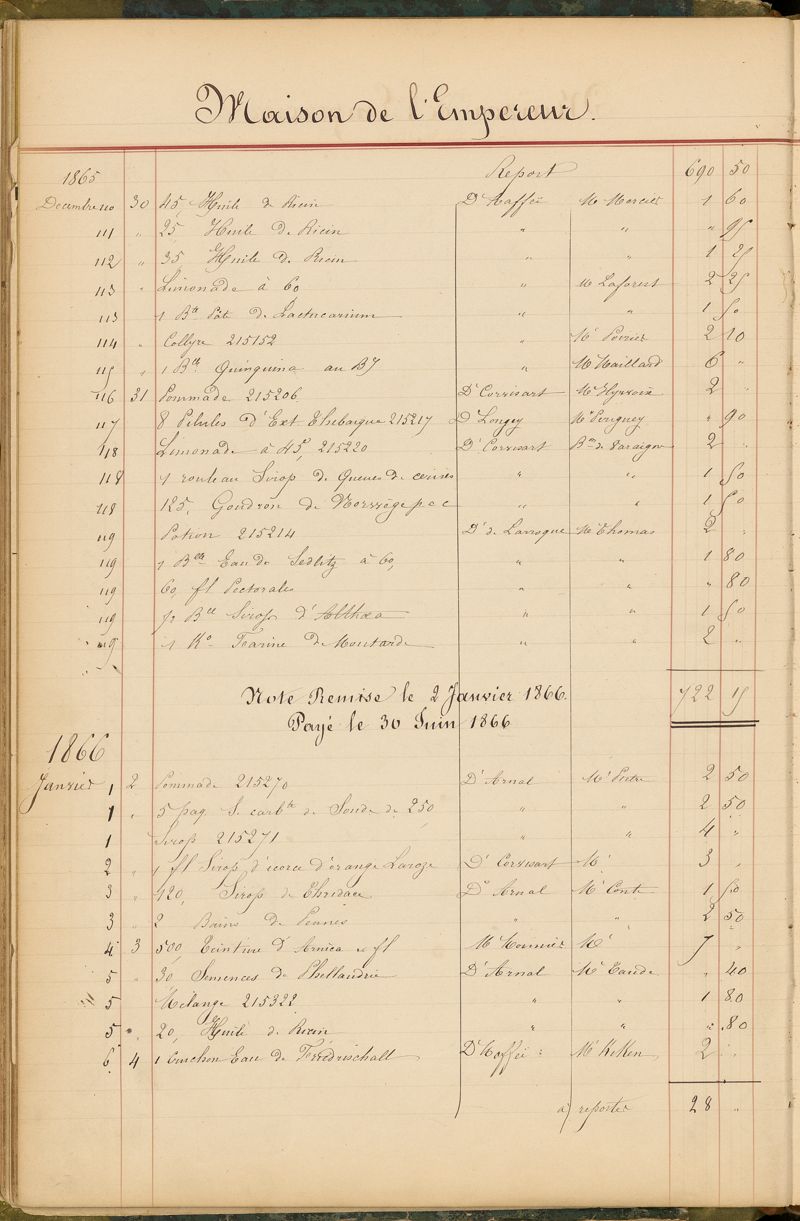 Maison de l'Empereur.
1865 Report 690 50
Decembre 110 30 45, Huile de Ricin Dr Maffei Mr Mercier 1 60
111 " 25, Huile de Ricin " " " 95
112 " 35 Huile de Ricin " " 1 25
113 " Limonade à 60 " Mr Laforest 2 25
113 1 Bte Pâte de Lactucarium " " 1 50
114 " Collyre 215152 " Mr Poirier 2 10
115 " 1 Blle Quinquina au BJ " Mr Maillard 6 "
116 31 Pommade 215206 Dr Corvisart Mr Hyrvoix 2 "
117 8 Pilules d'Ext Thebaique 215217 Dr Longey Mr " 90
118 Limonade à 45, 215220 Dr Corvisart Bon de 2 "
118 1 rouleau Sirop de Queues de cerises " " 1 50
118 125, Goudron de Norvège p c c " " 1 50
119 Potion 215214 Dr de Larroque Mr Thomas 2 "
119 1 Blle Eau de Sedlitz à 60, " " 1 80
119 60, fl Pectorales " " " 80
119 ½ Blle Sirop d'Althæa " " 1 50
119 1 Ko Farine de Moutarde " " 2 "
Note Remise le 2 Janvier 1866. 722 15
Payé le 30 Juin 1866
1866
Janvier 1 2 Pommade 215270 Dr Arnal Mr 2 50
1 " 5 paq. S. carbte de Soude de 250, " " 2 50
1 Sirop 215271 " " 4 "
2 " 1 fl Sirop d'écorce d'orange Laroze Dr Corvisart Mr 3 "
3 " 120, Sirop de Thridace Dr Arnal Mr Conti 1 50
3 " 2 Bains de Pennes " " 2 50
4 3 500, Teinture d'Arnica e fl Mr Mr 7 "
5 " 30 Semences de Phellandrie Dr Arnal Mr " 40
5 " Mélange 215322 " " 1 80
5 " 20, Huile de Ricin " " " 80
6 4 1 Cruchon Eau de Friedrischall Dr Maffei Mr 2 "
à reporter 28 "